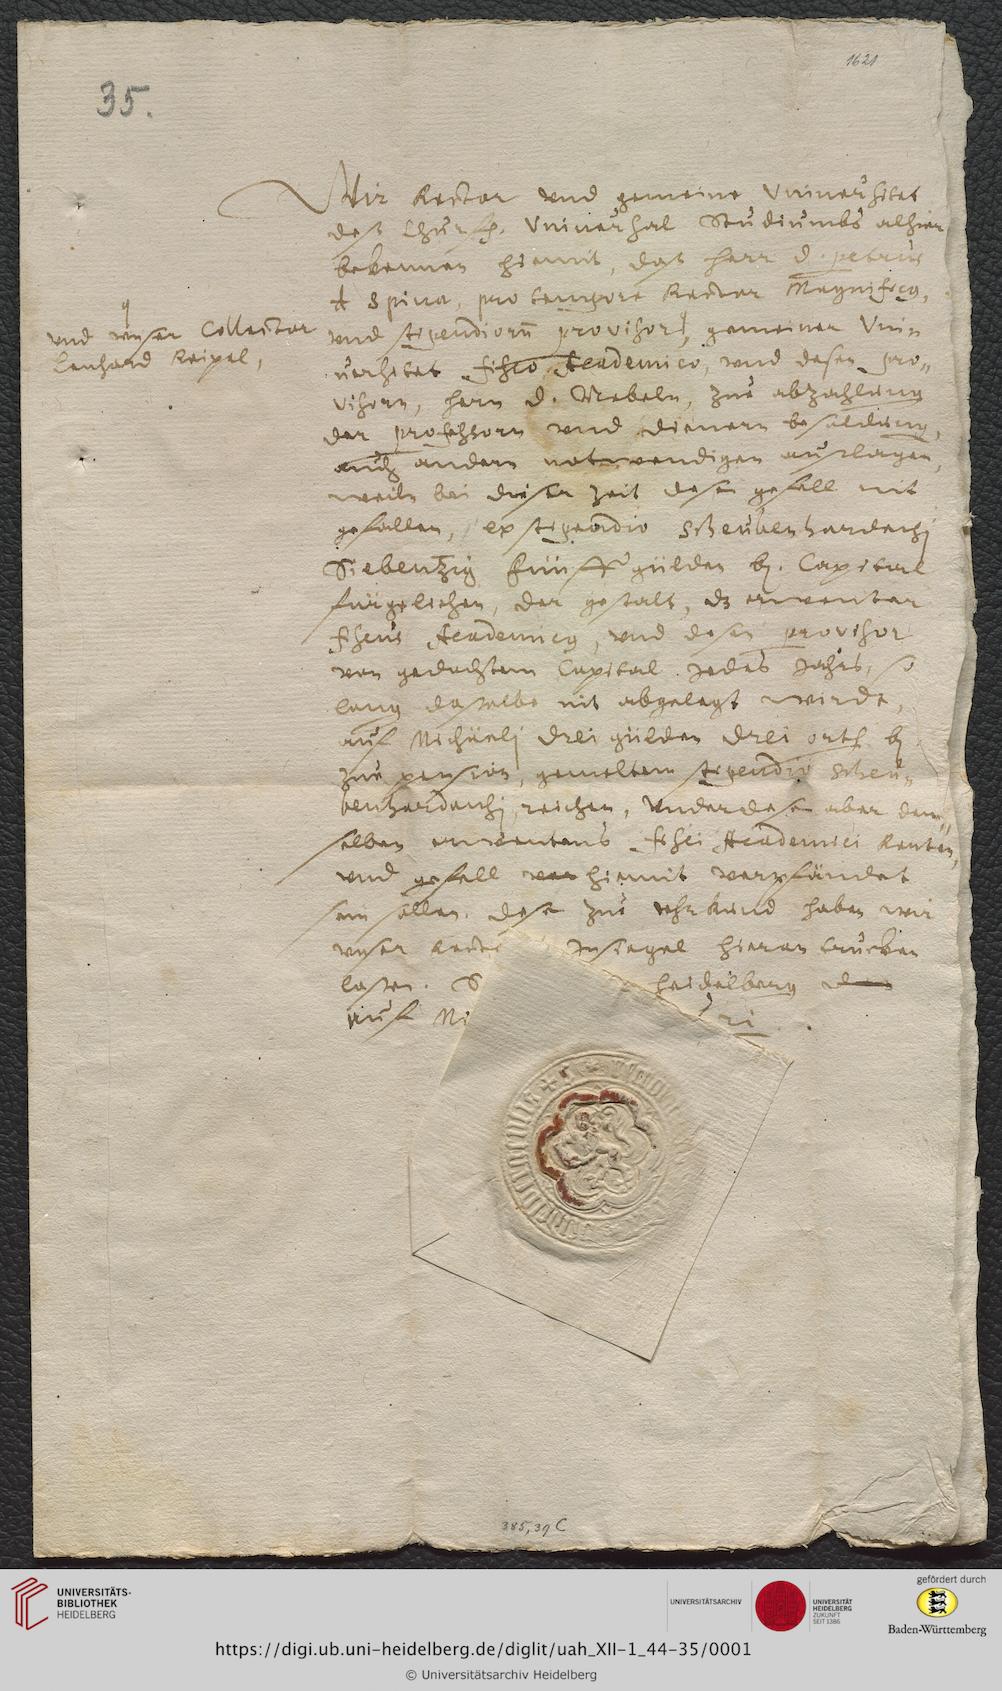 1621
35.
Wir Rector vnd gemeine Vniuersitet
deß Churf. Vniuersal Studiumbs alhier
bekennen hiemit, daß herr D. Petrus
â Spina, pro tempore Rector Magnificus,
vnd stipendiorum provisor, gemeiner Vni-
uersitet fisco Academico, vnd dessen pro-
visorn, hern D. Nebeln, zue abzahlung
der professorn vnd dienern besoldung,
auch andern notwendigen auslagen,
weiln bei dieser zeit dessen gefell nit
gefallen, ex stipendio Scheubenhardachj
Siebentzig fünff gülden bz. Capital
fürgeliehen, der gestalt, dz ernenter
fiscus Academicus, vnd dessen provisor
von gedachtem Capital Jedes Jahrs, so
lang dasselbe nit abgelegt wirdt,
auf Michaelj drei gülden drei orth bz
zue pension, gemeltem stipendio Scheu-
benhardachj, reichen, Vnderdessen aber dem-
selben ernentens fisci Academici Renten,
vnd gefell hiemit verpfändet
sein sollen. Dessen zue vhrkund haben wir
vnser Insiegel hieran trucken
lassen. Heidelberg
auf
vnd vnser Collector
Lenhard Keipel,
385,39 C
UNIVERSITÄTS-
BIBLIOTHEK
HEIDELBERG
UNIVERSITÄTSARCHIV
UNIVERSITÄT
HEIDELBERG
ZUKUNFT
SEIT 1386
gefördert durch
Baden-Württemberg
https://digi.ub.uni-heidelberg.de/diglit/uah_XII-1_44-35/0001
© Universitätsarchiv Heidelberg